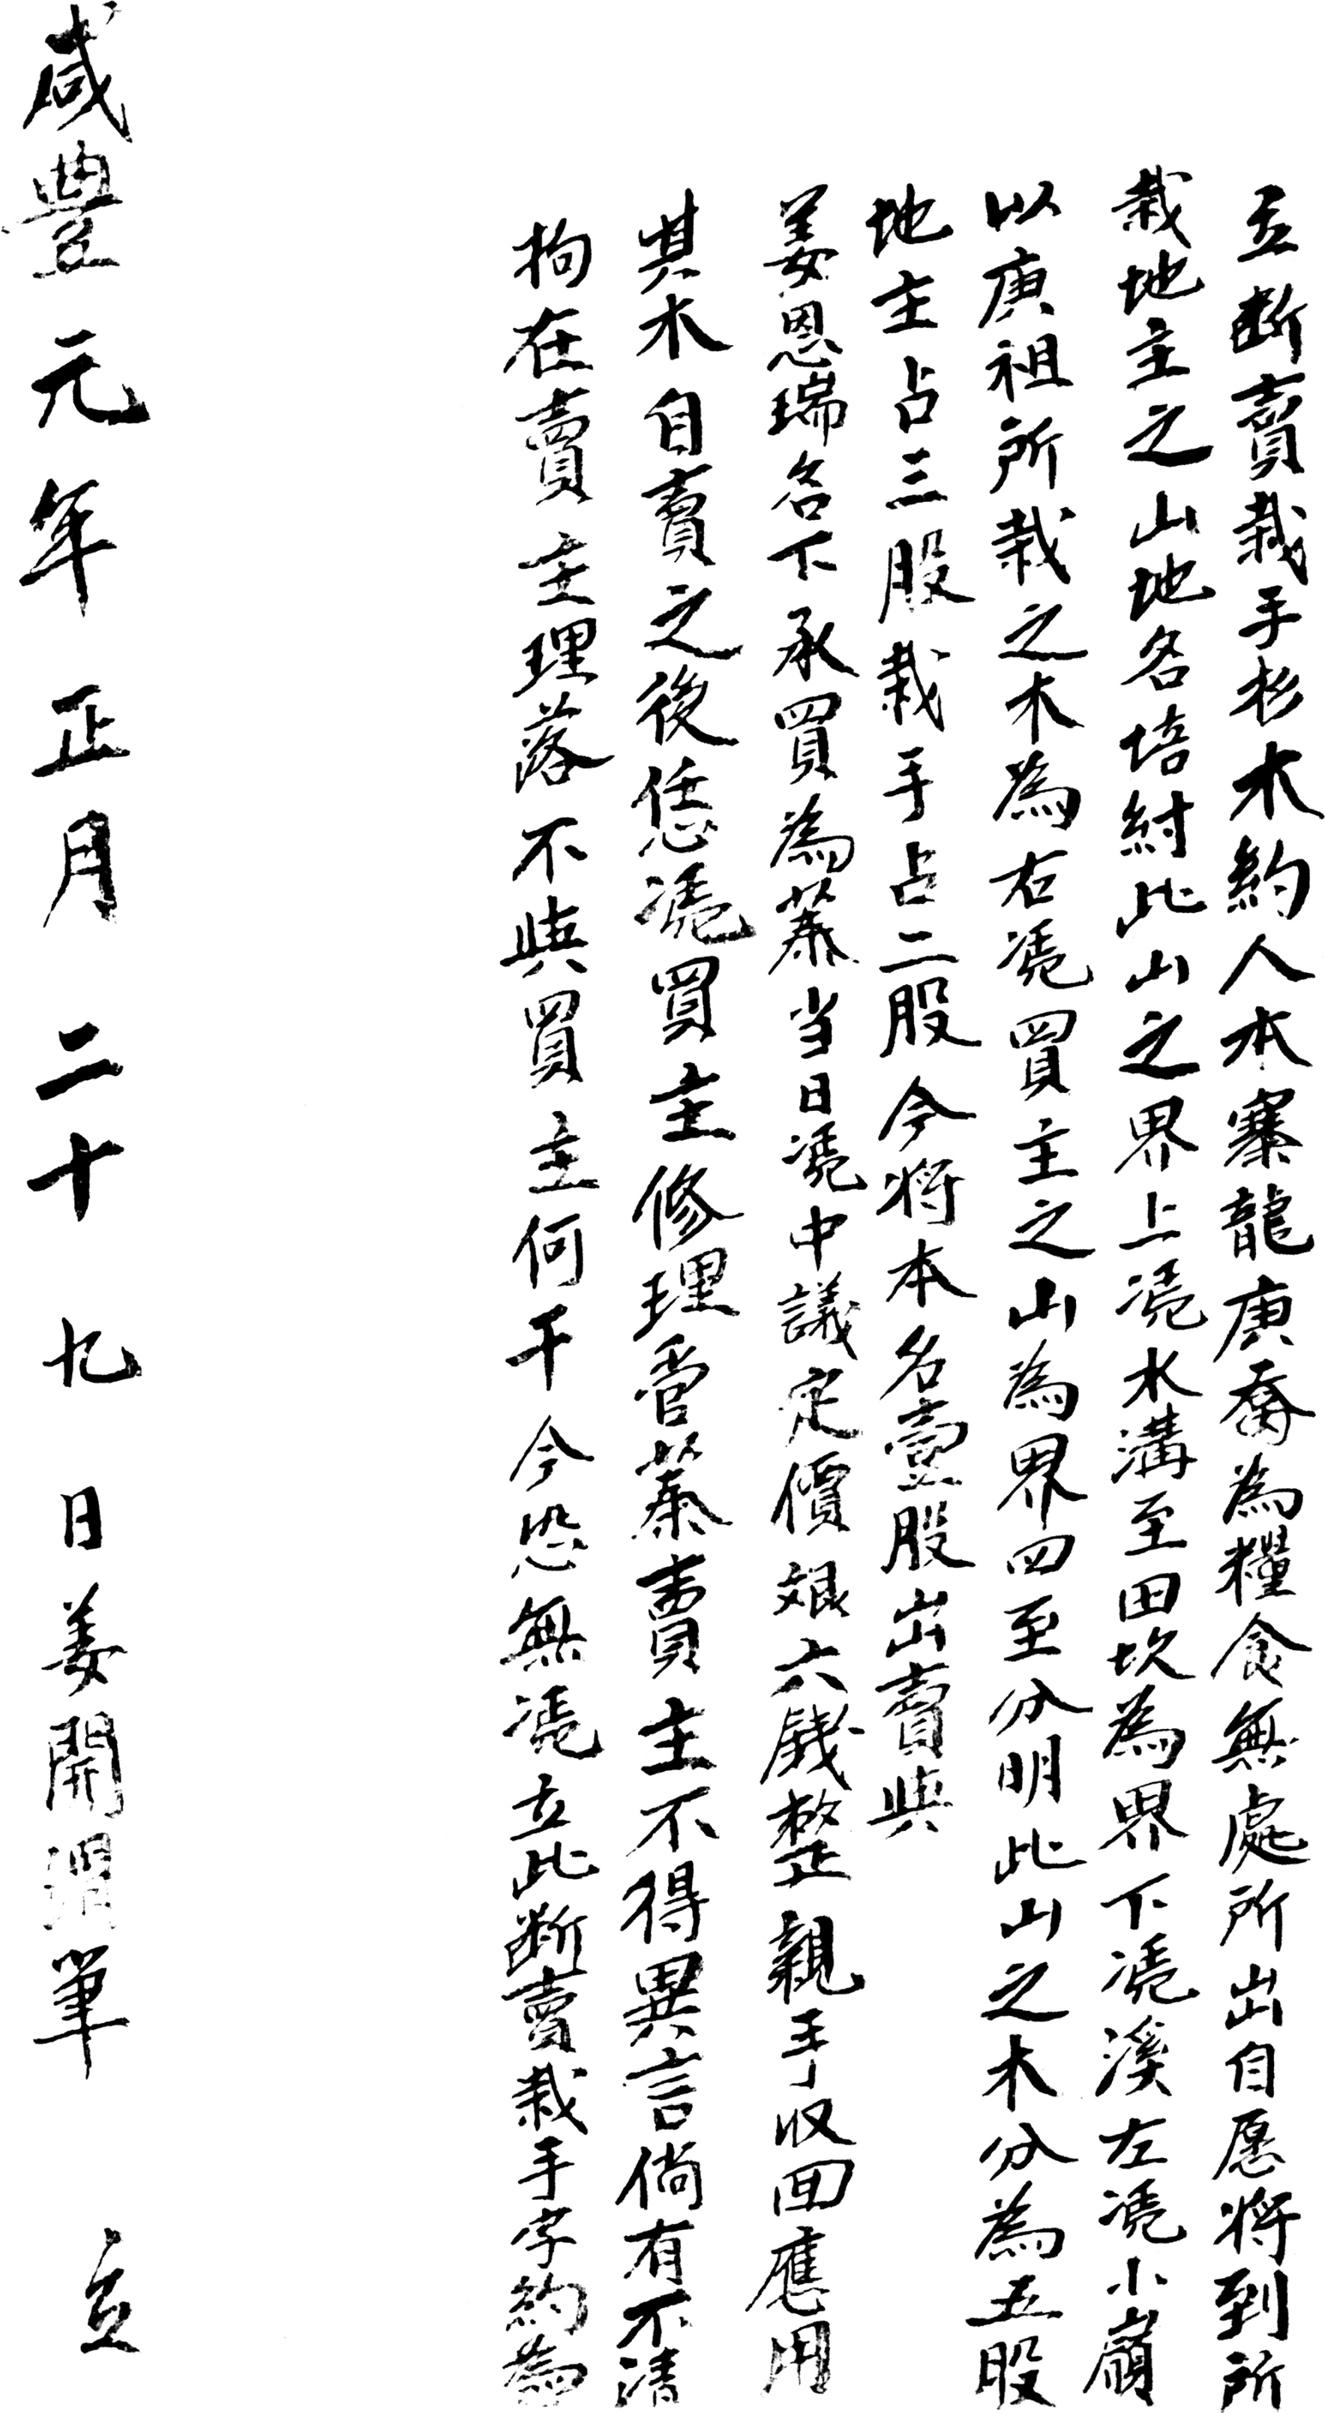 立断賣栽手杉木約人本寨龍庚喬為糧食無處所出自愿将到所
栽地主之山地名培紂此山之界上慿水溝至田坎為界下慿溪左慿小嶺
以庚祖所栽之木為右慿買主之山為界四至分明此山之木分為五股
地主占三股栽手占二股今将本名壹股出賣與
姜恩瑞名下承買為業当日慿中議定價銀六錢整親手收回應用
其木自賣之後恁慿買主修理管業賣主不得異言倘有不清
拘在賣主理落不與買主何干今恐無慿立此断賣栽手字約為
咸豐元年正月二十九日姜開渭筆 立